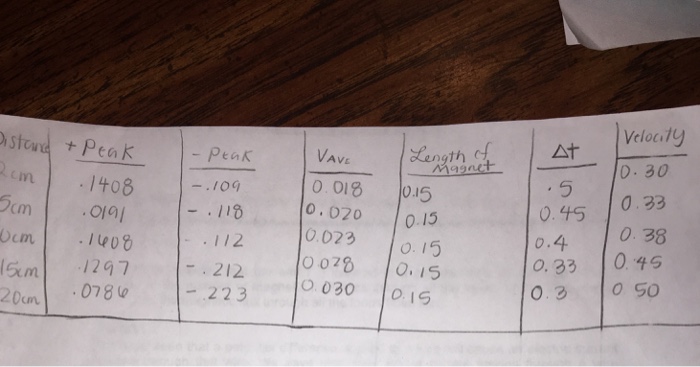 Distance + Peak - Peak VAVE Length of Magnet Δt Velocity
2cm .1408 -.109 0.018 0.15 .5 0.30
5cm .0191 -.118 0.020 0.15 0.45 0.33
-.112 0.023 0.15 0.4 0.38
15cm .1297 -.212 0.028 0.15 0.33 0.45
20cm -.223 0.030 0.15 0.3 0.50